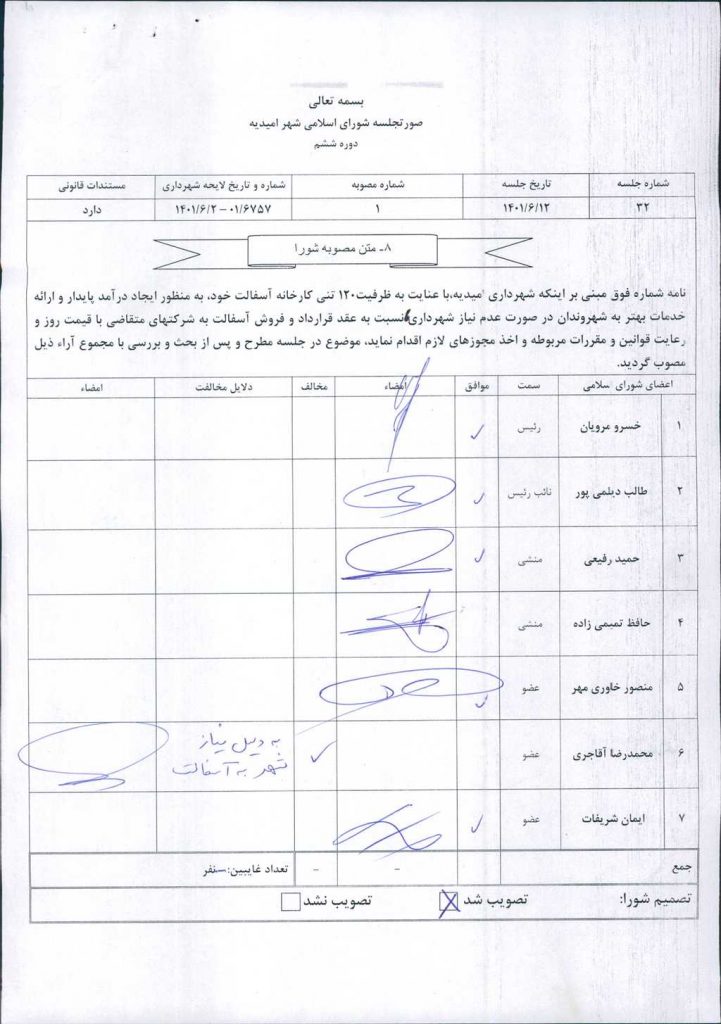 بسمه تعالی
صورتجلسه شورای اسلامی شهر امیدیه
دوره ششم
شماره جلسه تاریخ جلسه شماره مصوبه شماره و تاریخ لایحه شهرداری مستندات قانونی
۳۲ ۱۴۰۱/۶/۱۲ ۱ ۰۱/۶۷۵۷ – ۱۴۰۱/۶/۲ دارد
۸- متن مصوبه شورا
نامه شماره فوق مبنی بر اینکه شهرداری امیدیه،با عنایت به ظرفیت۱۲۰ تنی کارخانه آسفالت خود، به منظور ایجاد درآمد پایدار و ارائه
خدمات بهتر به شهروندان در صورت عدم نیاز شهرداری نسبت به عقد قرارداد و فروش آسفالت به شرکتهای متقاضی با قیمت روز و
رعایت قوانین و مقررات مربوطه و اخذ مجوزهای لازم اقدام نماید، موضوع در جلسه مطرح و پس از بحث و بررسی با مجموع آراء ذیل
مصوب گردید.
اعضای شورای اسلامی سمت موافق امضاء مخالف دلایل مخالفت امضاء
۱ خسرو مرویان رئیس ✓
۲ طالب دیلمی پور نائب رئیس ✓
۳ حمید رفیعی منشی ✓
۴ حافظ تمیمی زاده منشی
۵ منصور خاوری مهر عضو ✓
۶ محمدرضا آقاجری عضو ✓ به دلیل نیاز
شهر به آسفالت
۷ ایمان شریفات عضو ✓
جمع - - تعداد غایبین:-نفر
تصمیم شورا: تصویب شد ☒ تصویب نشد ☐